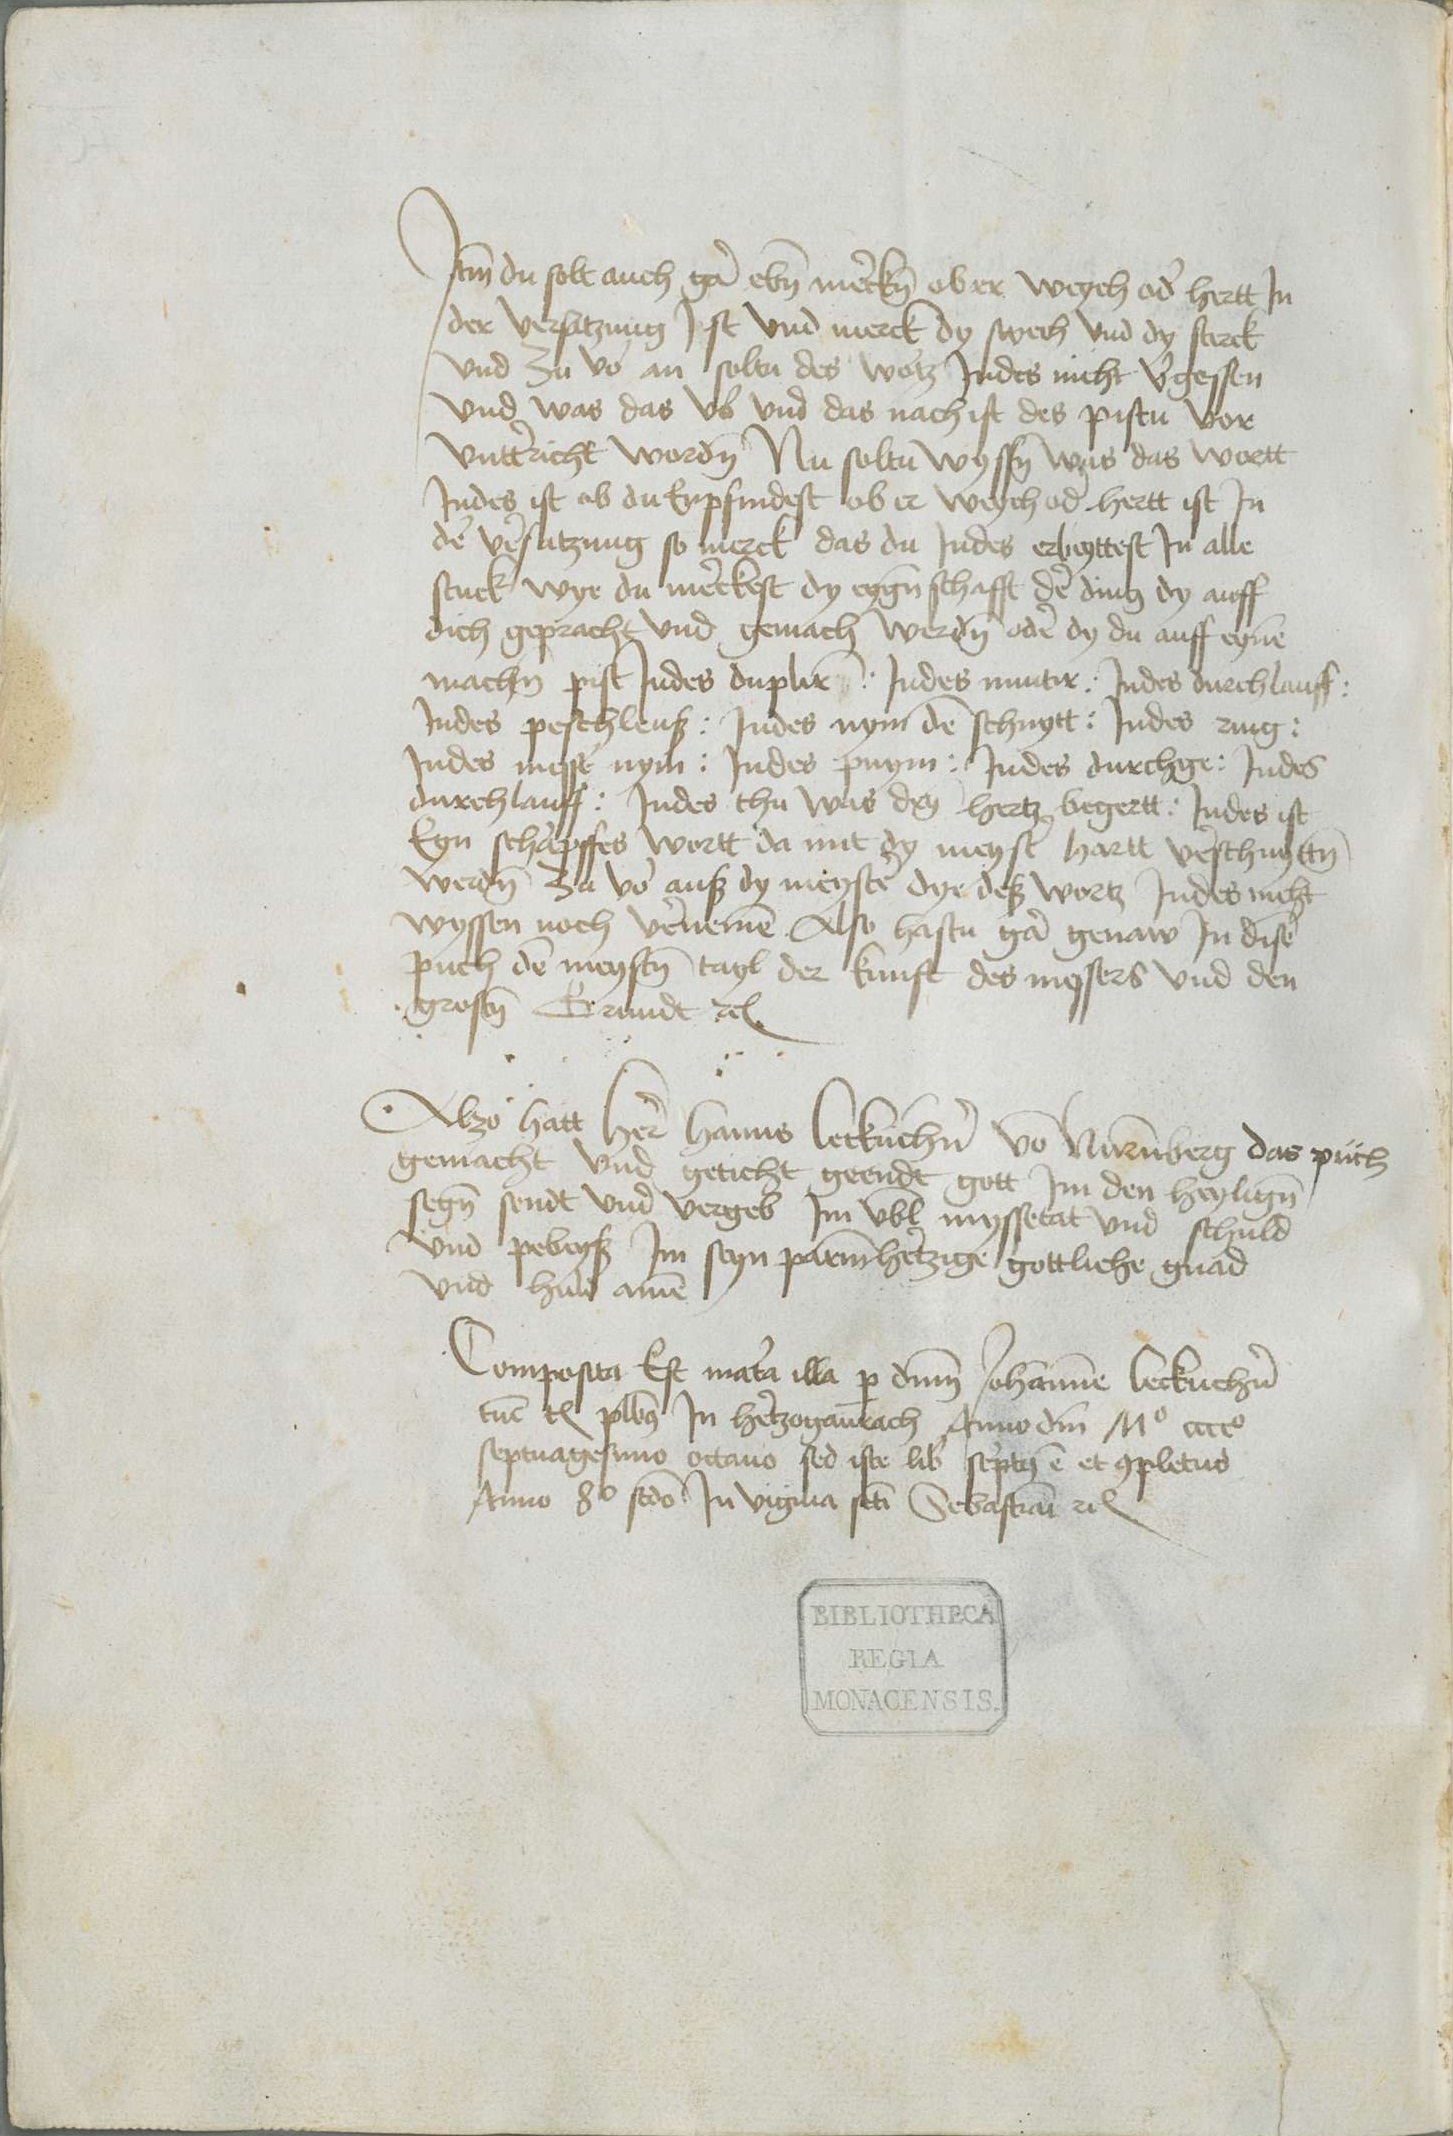 Itm̄ du solt auch gar̉ ebn̄ mer̉ckn̄ ob er weych od̉ hertt In
der versatzung Ist vnd merck dy swech vnd dy sterck
vnd zu vor̉ an soltu des wortz Indes nicht v̉gessen
vnd was das vor̉ vnd das nach ist des pistu vor
vntter̉richt wordn̄ Nu soltu wyssn̄ was das wortt
Indes ist ob du Enpfindest ob er weych od̉ hertt ist In
der̉ ver̉satzung so merck das du Indes erbeyttest In alle
stuck wye du mer̉ckest dy eygn̄schafft der̉ ding dy auff
dich gepracht vnd gemach werdn̄ oder̉ dy du auff eyne̅
machn̄ pist Indes duplir̄ : Indes mutir : Indes durchlauff :
Indes peschleuß : Indes nym de̅ schnytt : Indes ring :
Indes messer̉ nym : Indes pnym : Indes durchge : Indes
durchlauff : Indes thu was deyn̄ hertz begertt : Indes ist
Eyn schar̉pffes wortt da mit dy meyster̉ hartt ver̉schnyttn̄
werdn̄ zu vor̉ auß dy meyster̉ dye deß wortz Indes nicht
wyssen noch ver̉neme̅ Also hastu gar̉ genaw In dise̅
puch de̅ meystn̄ tayl der kunst des messers vnd den
grosn̄ Grundt ꝛcꝭ
Alzo hatt her̉ hanns lecküchn̉ vo̅ Nurn̄berg das püch
gemacht vnd geticht geendt gott Im den heylign̄
segn̄ sendt vnd vergeb Im vbl̄ myssetat vnd schuld
vnd peweyß Im seyn parm̄her̉tzige gottliche gnad
vnd huld ame̅
Composita Est mater̉ia illa ꝑ dnm̄ Johanne̅ leckuchn̉
tu̅c tꝭ plb̄ꝰ In her̉tzogaurach Anno dm̄ Mº ccccº
septuagesimo octauo sed iste lib̉ scr̉iptꝰ e̅ et ꝯpletus
Anno 8º sc̄do In vigilia sc̄ti Sebastiani ꝛcꝭ
BIBLIOTHECA
REGIA
MONACENSIS.